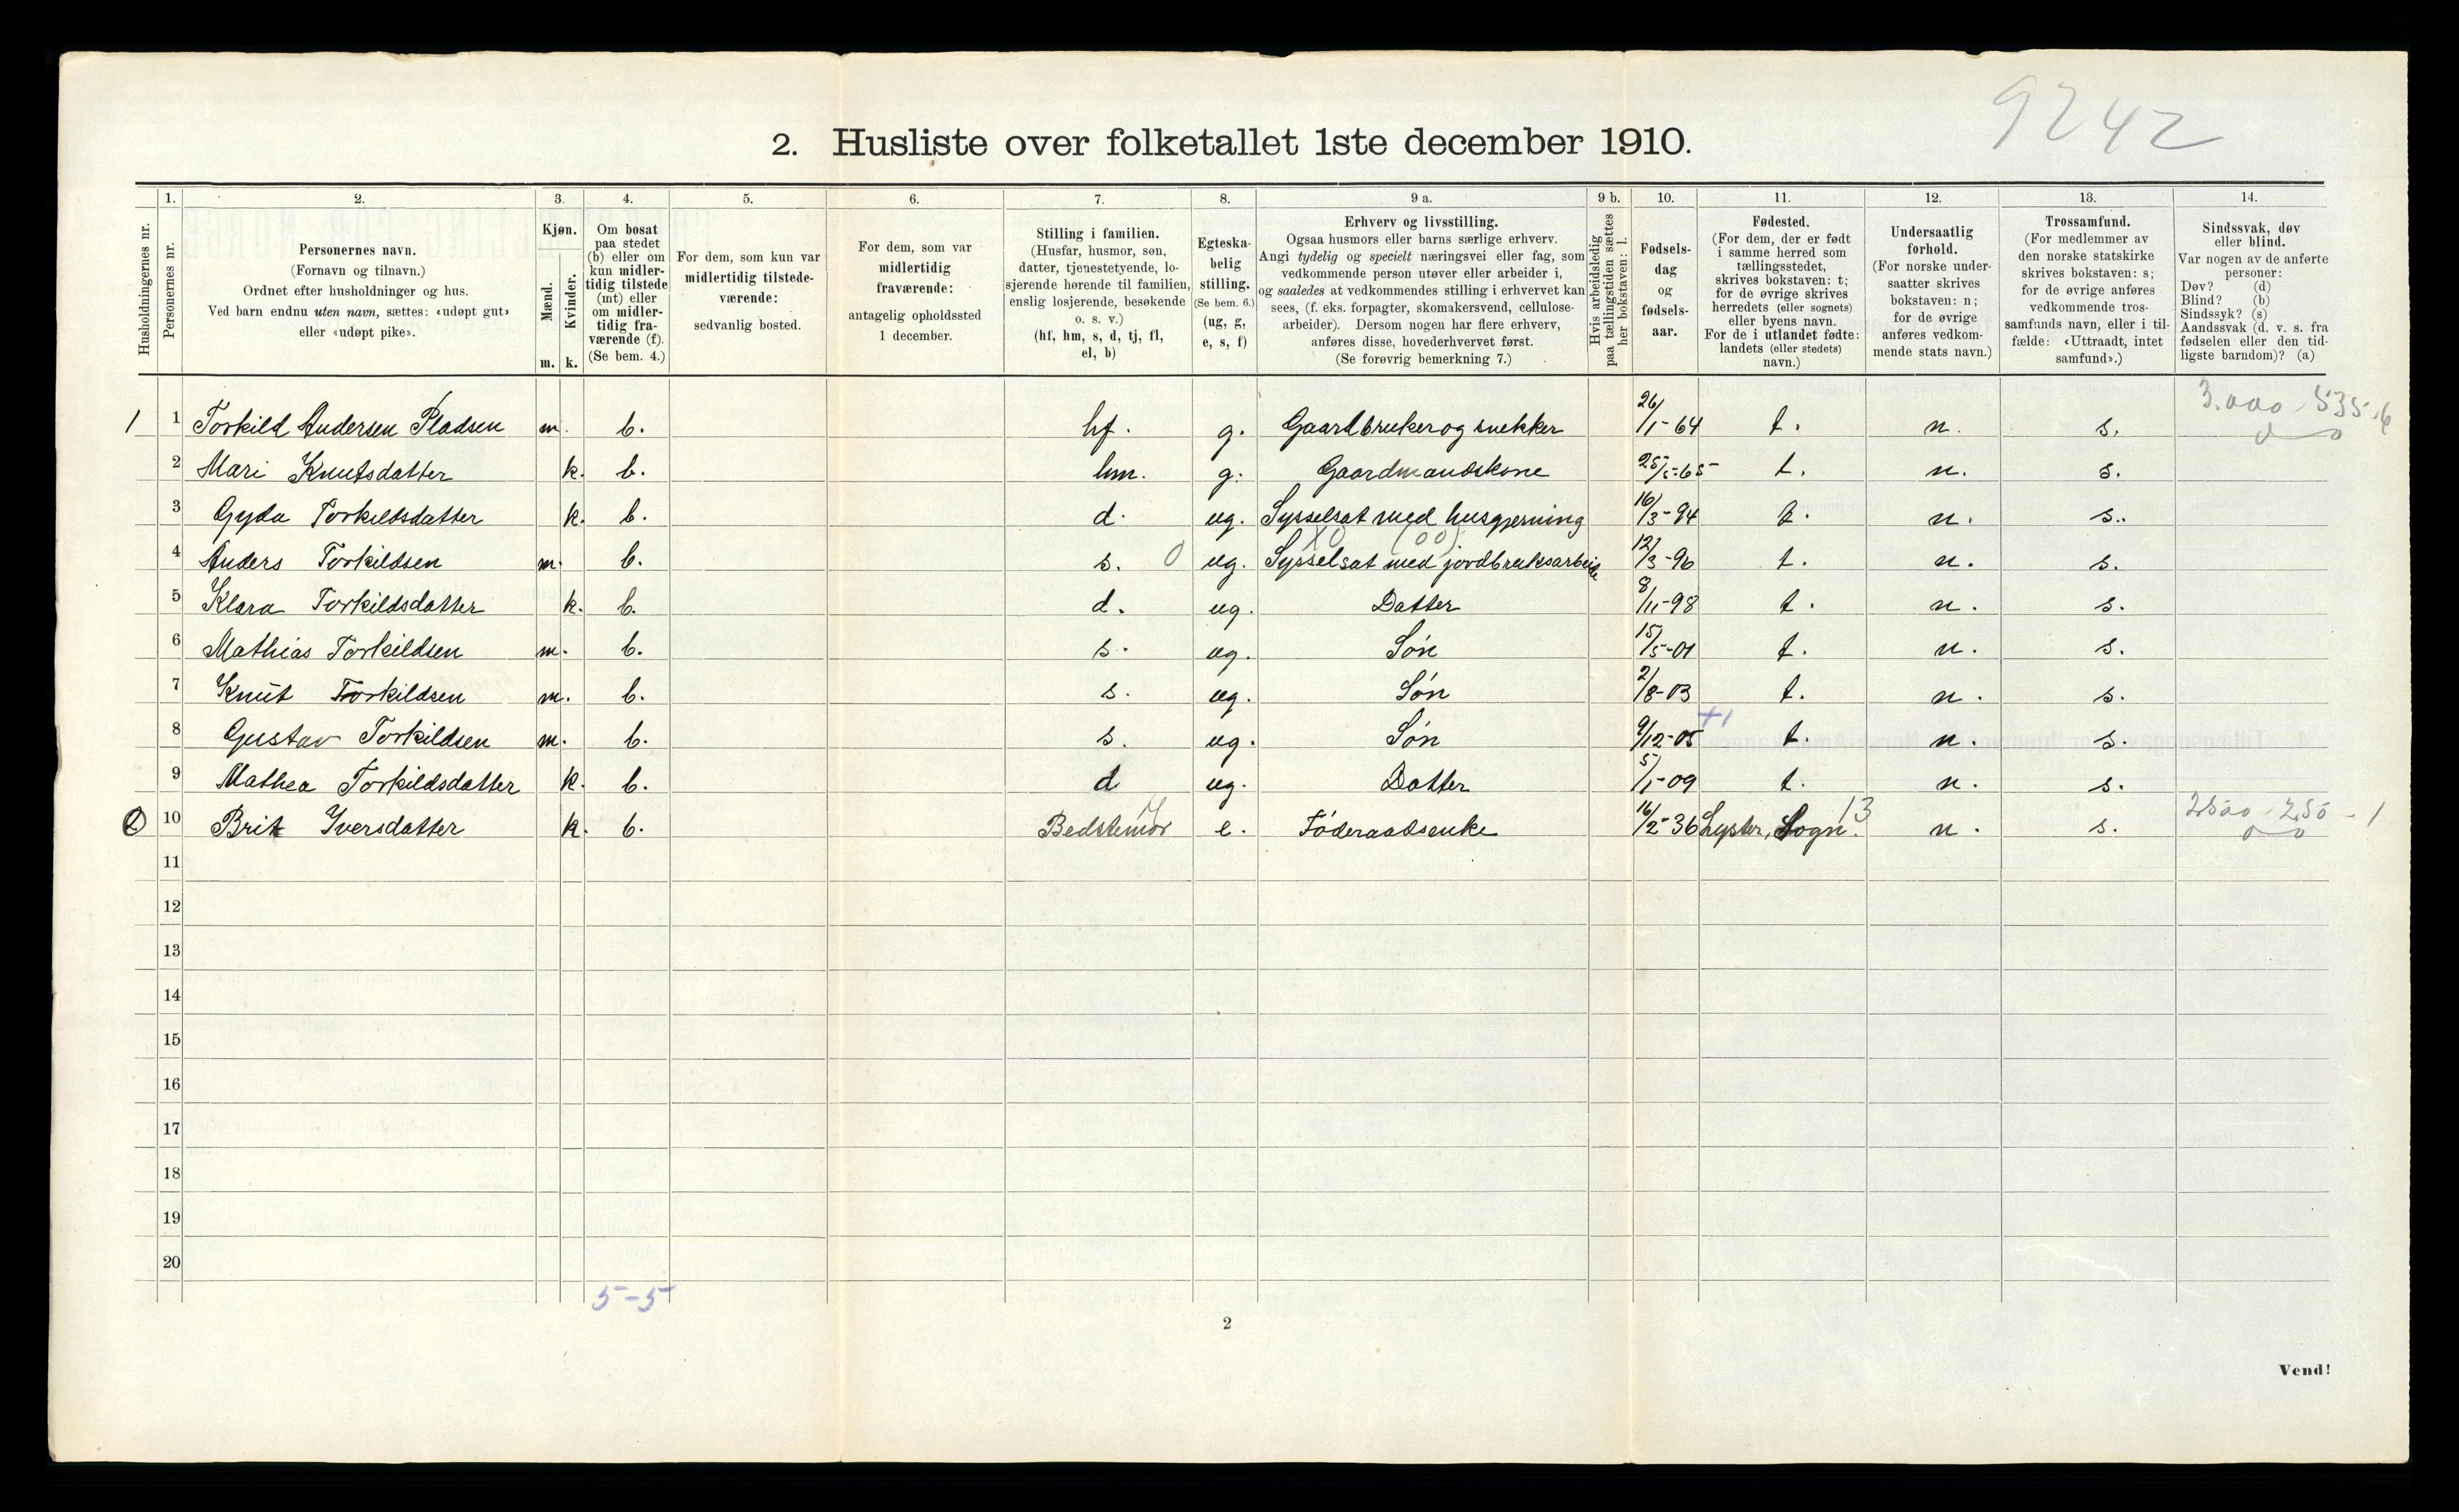 9242
2. Husliste over folketallet 1ste december 1910.
Husholdningernes nr.
1.
Personernes nr.
2.
Personernes navn.
(Fornavn og tilnavn.)
Ordnet efter husholdninger og hus.
Ved barn endnu uten navn, sættes: «udøpt gut»
eller «udøpt pike».
3.
Kjøn.
Mænd.
Kvinder.
m. k.
4.
Om bosat
paa stedet
(b) eller om
kun midler-
tidig tilstede
(mt) eller
om midler-
tidig fra-
værende (f).
(Se bem. 4.)
5.
For dem, som kun var
midlertidig tilstede-
værende:
sedvanlig bosted.
6.
For dem, som var
midlertidig
fraværende:
antagelig opholdssted
1 december.
7.
Stilling i familien.
(Husfar, husmor, søn,
datter, tjenestetyende, lo-
sjerende hørende til familien,
enslig losjerende, besøkende
o. s. v.)
(hf, hm, s, d, tj, fl,
el, b)
8.
Egteska-
belig
stilling.
(Se bem. 6.)
(ug, g,
e, s, f)
9 a.
Erhverv og livsstilling.
Ogsaa husmors eller barns særlige erhverv.
Angi tydelig og specielt næringsvei eller fag, som
vedkommende person utøver eller arbeider i,
og saaledes at vedkommendes stilling i erhvervet kan
sees, (f. eks. forpagter, skomakersvend, cellulose-
arbeider). Dersom nogen har flere erhverv,
anføres disse, hovederhvervet først.
(Se forøvrig bemerkning 7.)
9 b.
Hvis arbeidsledig
paa tællingstiden sættes
her bokstaven: l.
10.
Fødsels-
dag
og
fødsels-
aar.
11.
Fødested.
(For dem, der er født
i samme herred som
tællingsstedet,
skrives bokstaven: t;
for de øvrige skrives
herredets (eller sognets)
eller byens navn.
For de i utlandet fødte:
landets (eller stedets)
navn.)
12.
Undersaatlig
forhold.
(For norske under-
saatter skrives
bokstaven: n;
for de øvrige
anføres vedkom-
mende stats navn.)
13.
Trossamfund.
(For medlemmer av
den norske statskirke
skrives bokstaven: s;
for de øvrige anføres
vedkommende tros-
samfunds navn, eller i til-
fælde: «Uttraadt, intet
samfund».)
14.
Sindssvak, døv
eller blind.
Var nogen av de anførte
personer:
Døv? (d)
Blind? (b)
Sindssyk? (s)
Aandssvak (d. v. s. fra
fødselen eller den tid-
ligste barndom)? (a)
1 1 Torkild Andersen Pladsen m. b. hf. g. Gaardbruker og snekker 26/1-64 t. n. s. 3.000-535-6
2 Mari Knutsdatter k. b. hm. g. Gaardmandskone 25/5-65 t. n. s.
3 Gyda Torkildsdatter k. b. d. ug. Sysselsat med husgjerning 16/3-94 t. n. s.
4 Anders Torkildsen m. b. s. 0 ug. Sysselsat med jordbruksarbeide 12/3-96 t. n. s.
5 Klara Torkildsdatter k. b. d. ug. Datter 8/11-98 t. n. s.
6 Mathias Torkildsen m. b. s. ug. Søn 15/5-01 t. n. s.
7 Knut Torkildsen m. b. s. ug. Søn 2/8-03 t. n. s.
8 Gustav Torkildsen m. b. s. ug. Søn 9/12-05 t. n. s.
9 Mathea Torkildsdatter k. b. d ug. Datter 5/1-09 t. n. s.
2 10 Brit Iversdatter k. b. Bedstemor e. Føderaadsenke 16/2-36 Lyster, Sogn. 13 n. s. 2500-250-1
11
12
13
14
15
16
17
18
19
20
5-5
2
Vend!